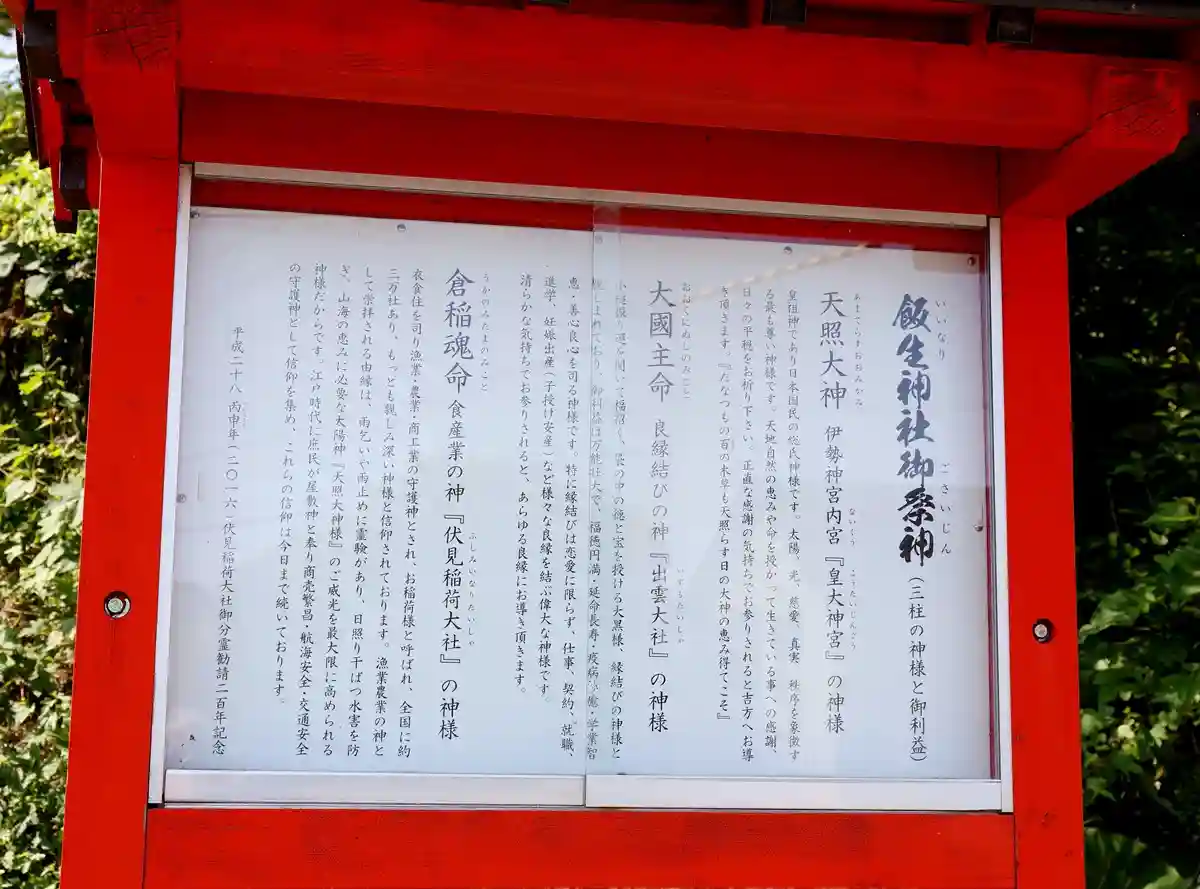 飯生神社御祭神(三柱の神様と御利益)
いいなり ごさいじん
天照大神 伊勢神宮内宮『皇大神宮』の神様
あまてらすおおみかみ ないくう こうたいじんぐう
皇祖神であり日本国民の総氏神様です。太陽、光、慈愛、真実 秩序を象徴す
る最も尊い神様です。天地自然の恵みや命を授かって生きている事への感謝、
日々の平穏をお祈り下さい。正直な感謝の気持ちでお参りされると吉方へお導
き頂きます。『たなつもの百の木草も天照らす日の大神の恵み得てこそ』
大國主命 良縁結びの神『出雲大社』の神様
おおくにぬしのみこと いずもたいしゃ
を開いて福招く、袋の中の徳と宝を授ける大黒様、縁結びの神様と
しまれており、御利益は万能壮大で、福徳円満・延命長寿・疫病治癒・学業智
恵・善心良心を司る神様です。特に縁結びは恋愛に限らず、仕事、契約、就職、
進学、妊娠出産(子授け安産)など様々な良縁を結ぶ偉大な神様です。
清らかな気持ちでお参りされると、あらゆる良縁にお導き頂きます。
倉稲魂命 食産業の神『伏見稲荷大社』の神様
うかのみたまのみこと ふしみいなりたいしゃ
衣食住を司り漁業・農業・商工業の守護神とされ、お稲荷様と呼ばれ、全国に約
三万社あり、もっとも親しみ深い神様と信仰されております。漁業農業の神と
して崇拝される由縁は、雨乞いや雨止めに霊験があり、日照り干ばつ水害を防
ぎ、山海の恵みに必要な太陽神『天照大神様』のご威光を最大限に高められる
神様だからです。江戸時代に庶民が屋敷神と奉り商売繁昌・航海安全・交通安全
の守護神として信仰を集め、これらの信仰は今日まで続いております。
平成二十八 丙申年(二〇一六)伏見稲荷大社御分霊勧請二百年記念